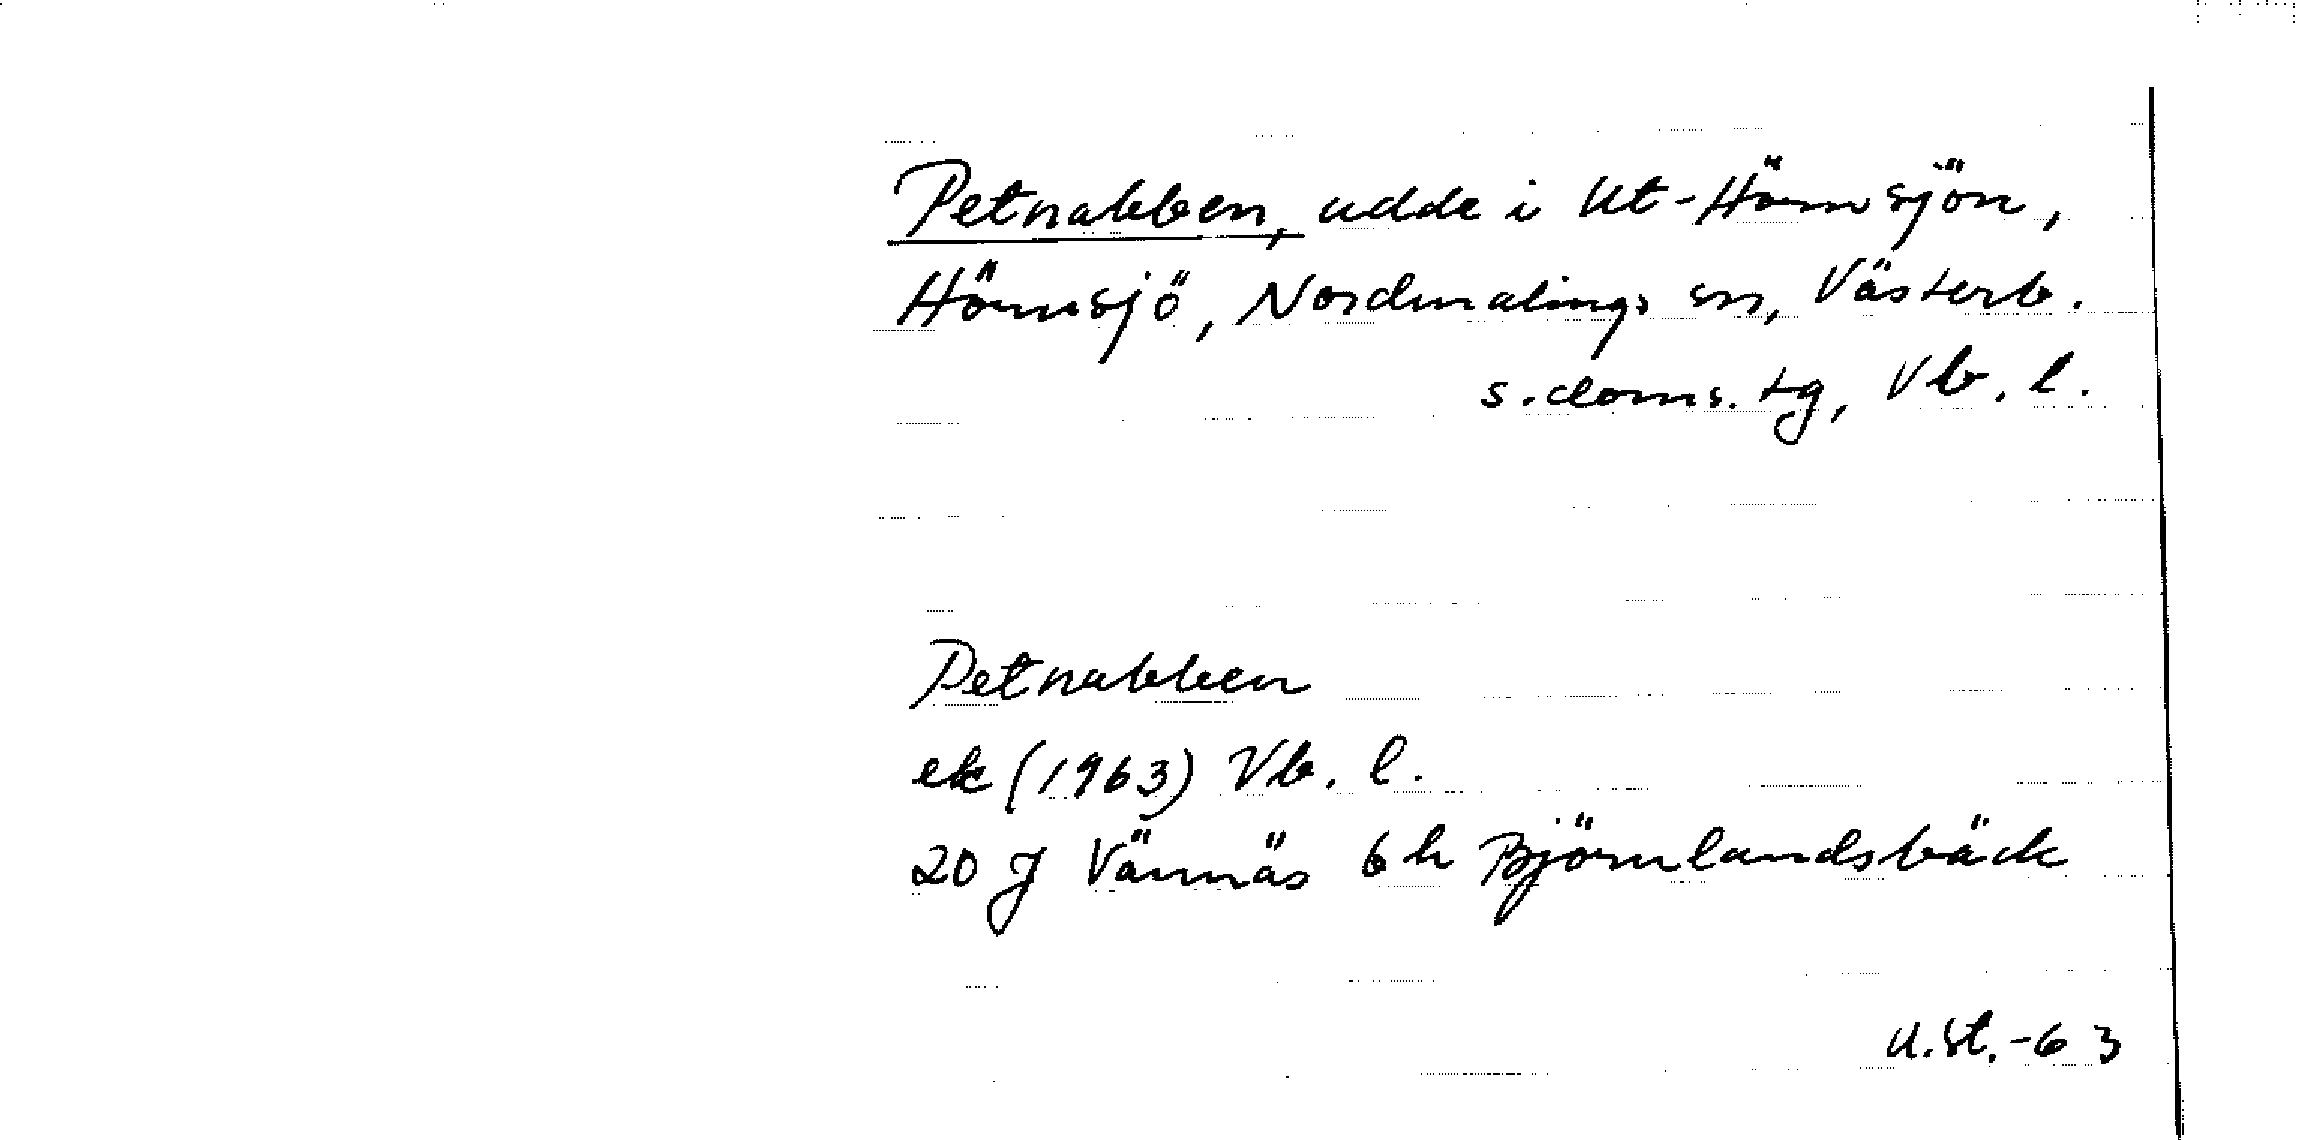 Petnabben, udde i Ut-Hörnsjön,
Hörnsjö, Nordmalings sn, Västerb.
s. doms. tg, Vb. l.
Petnabben
ek (1963) Vb. l.
20 J Vännäs 6 h Björnlandsbäck
U.St.-63